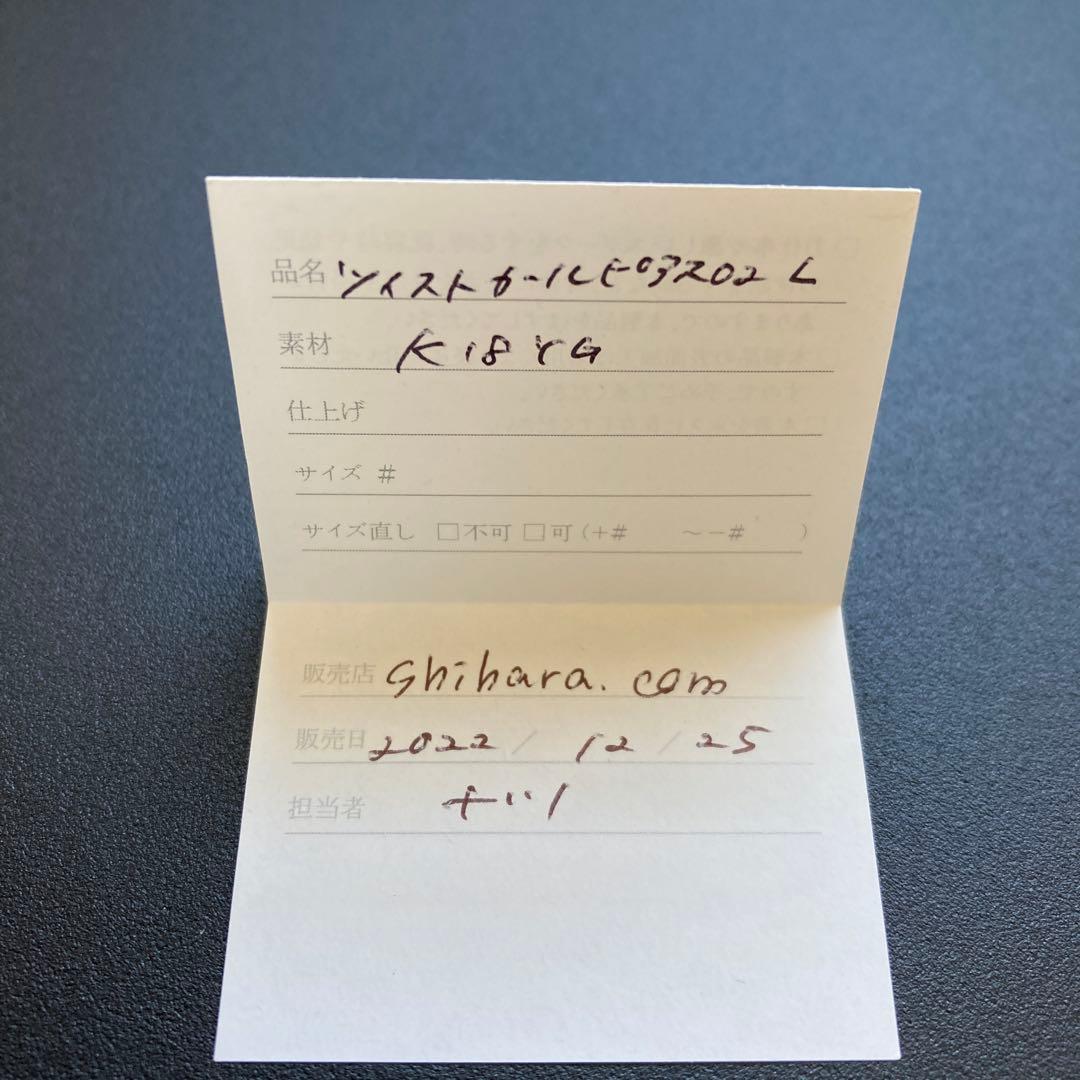 品名 ツイストカールピアス02 L
素材 K18YG
仕上げ
サイズ #
サイズ直し □不可 □可(+# ～-# )
販売店 Shihara.com
販売日 2022 / 12 / 25
担当者